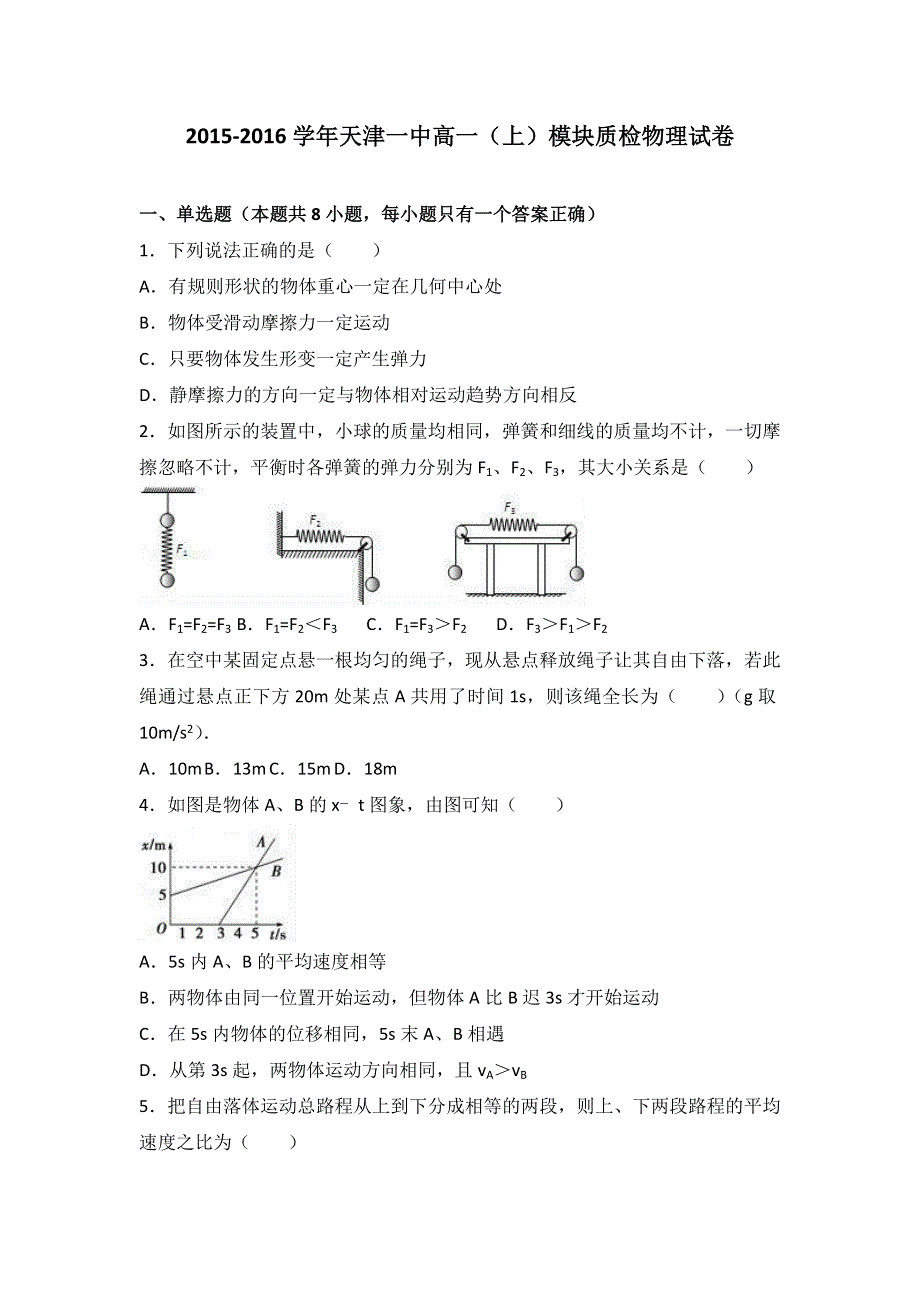 2015-2016 学年天津一中高一（上）模块质检物理试卷
一、单选题（本题共 8 小题，每小题只有一个答案正确）
1．下列说法正确的是（　　）
A．有规则形状的物体重心一定在几何中心处
B．物体受滑动摩擦力一定运动
C．只要物体发生形变一定产生弹力
D．静摩擦力的方向一定与物体相对运动趋势方向相反
2．如图所示的装置中，小球的质量均相同，弹簧和细线的质量均不计，一切摩
擦忽略不计，平衡时各弹簧的弹力分别为 F₁、F₂、F₃，其大小关系是（　　）
F₁
F₂
F₃
A．F₁=F₂=F₃ B．F₁=F₂＜F₃　C．F₁=F₃＞F₂　D．F₃＞F₁＞F₂
3．在空中某固定点悬一根均匀的绳子，现从悬点释放绳子让其自由下落，若此
绳通过悬点正下方 20m 处某点 A 共用了时间 1s，则该绳全长为（　　）（g 取
10m/s²）．
A．10m B．13m C．15m D．18m
4．如图是物体 A、B 的 x﹣t 图象，由图可知（　　）
x/m
A
10
B
5
O 1 2 3 4 5 t/s
A．5s 内 A、B 的平均速度相等
B．两物体由同一位置开始运动，但物体 A 比 B 迟 3s 才开始运动
C．在 5s 内物体的位移相同，5s 末 A、B 相遇
D．从第 3s 起，两物体运动方向相同，且 vA＞vB
5．把自由落体运动总路程从上到下分成相等的两段，则上、下两段路程的平均
速度之比为（　　）